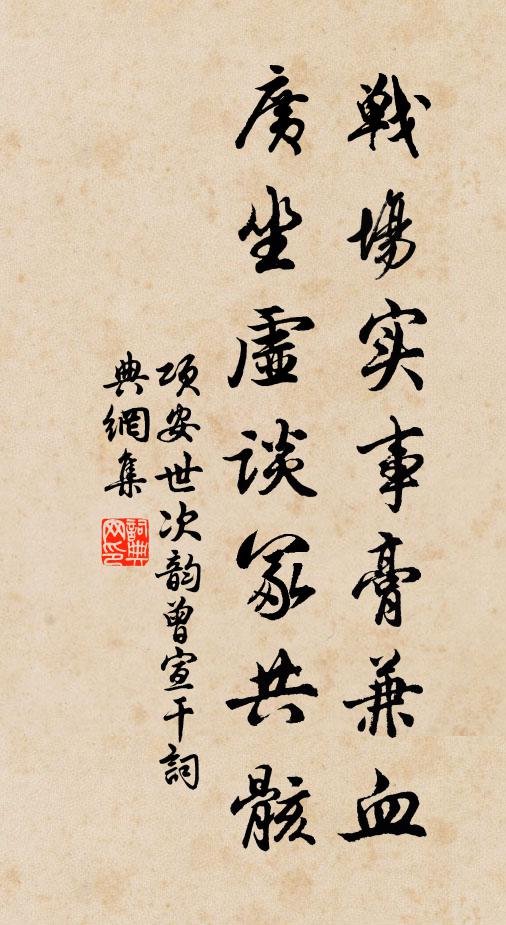 戦場实事膏兼血
廣坐虛談冢共骸
项安世次韵曾宣干詞
典網集
詞典网印